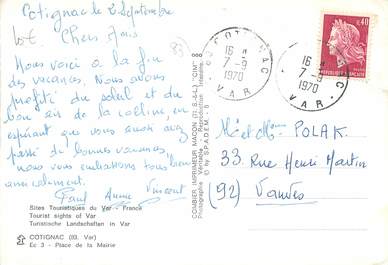 Cotignac le 2 Septembre
Chers Amis
Nous voici à la fin
des vacances. Nous avons
profité du soleil et du
bon air de la colline, en
espérant que vous aussi avez
passé de bonnes vacances,
nous vous embrassons tous bien
amicalement.
Paul Annie Vincent
Sites Touristiques du Var - France
Tourist sights of Var
Turistische Landschaften in Var
COTIGNAC (83. Var)
Ec 3 - Place de la Mairie
COMBIER IMPRIMEUR MACON (71. S.-&-L.) "CIM"
Photographie Véritable - Reproduction Interdite
© by S.P.A.D.E.M. - 8
83
COTIGNAC
16 H
7-9
1970
VAR
COTIGNAC
16 H
7-9
1970
VAR
0,40
REPUBLIQUE FRANÇAISE
Mr et Mme POLAK
33 Rue Henri Martin
(92) Vanves